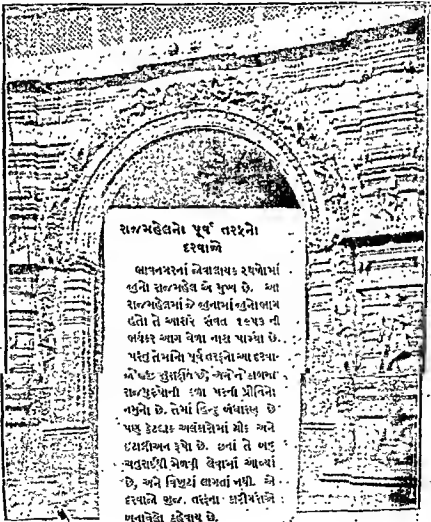 રાજમહેલનો પૂર્વ તરફનો
દરવાજો
ભાવનગરનાં જોવાલાયક સ્થળોમાં
જુનો રાજમહેલ એ મુખ્ય છે. આ
રાજમહેલમાં જે જુનામાં જુનો ભાગ
હતો તે આશરે સંવત ૧૯૫૩ ની
ભયંકર આગ વેળા નાશ પામ્યો છે.
પરંતુ તેમાંનો પૂર્વ તરફનો આ દરવા-
જો હજી સુરક્ષિત છે, અને તે કાળના
રાજપુરૂષોની કળા પરની પ્રીતિનો
નમુનો છે. તેમાં હિન્દુ બંધારણ છે
પણ કેટલાક અલંકારોમાં ગ્રીક અને
ઇટાલીઅન રૂપો છે. છતાં તે બહુ
ચતુરાઈથી મેળવી લેવામાં આવ્યાં
છે, અને વિજાત્ય લાગતાં નથી. એ
દરવાજો ભુજ તરફના કારીગરોએ
બનાવેલો કહેવાય છે.